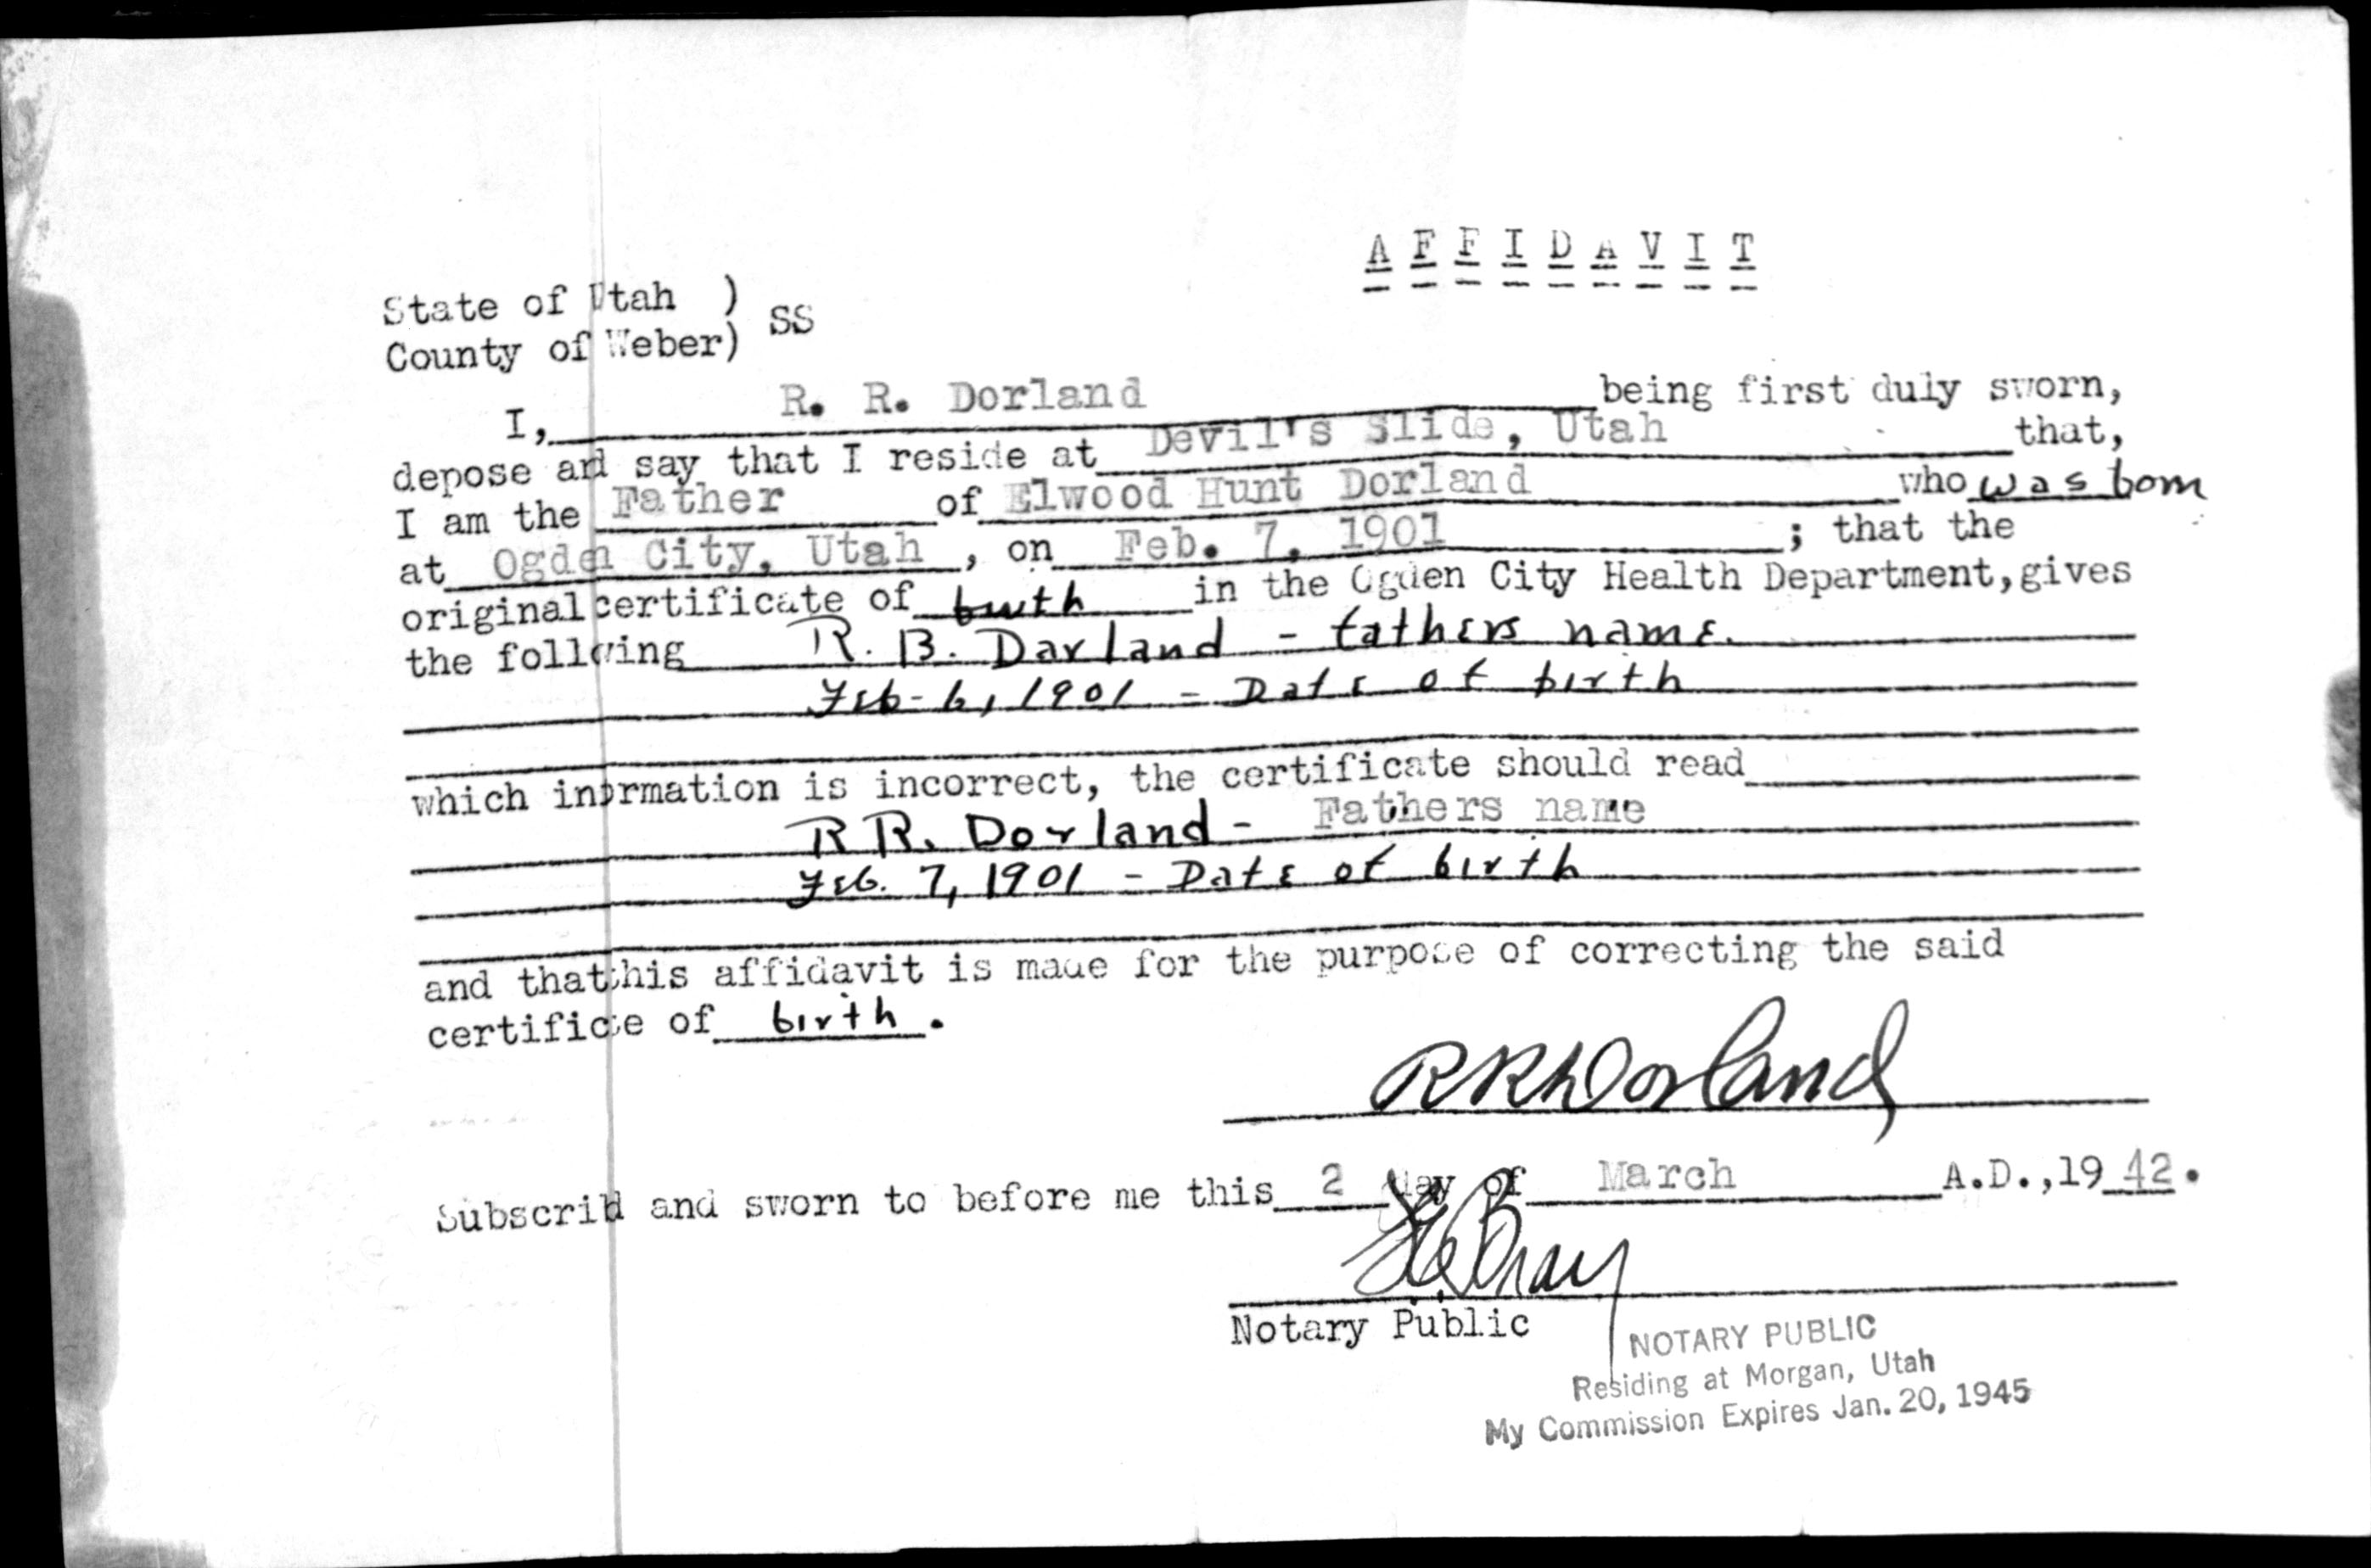 A F F I D A V I T
State of Utah )
County of Weber) SS
I, R. R. Dorland being first duly sworn,
depose and say that I reside at Devil's Slide, Utah that,
I am the Father of Elwood Hunt Dorland who was born
at Ogden City, Utah , on Feb. 7, 1901 ; that the
original certificate of birth in the Ogden City Health Department, gives
the following R. B. Darland - fathers name.
Feb - 6, 1901 - Date of birth
which inormation is incorrect, the certificate should read
R R. Dorland - Fathers name
Feb. 7, 1901 - Date of birth
and that this affidavit is made for the purpose of correcting the said
certificate of birth .
R R Dorland
Subscribd and sworn to before me this 2 day of March A.D.,19 42.
Bray
Notary Public
NOTARY PUBLIC
Residing at Morgan, Utah
My Commission Expires Jan. 20, 1945